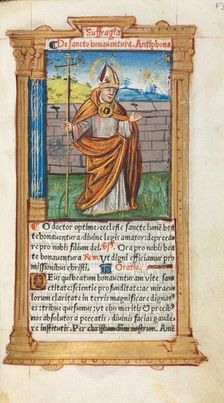 Suffragia
De sancto bonauentura. Antiphona
O doctor optime/ ecclesie sancte lumē/ bea
te bonauentura/ diuine legis amator: depreca
re pro nobis filium dei. Ora pro nobis bea
te bonauentura Vt digni efficiamur pro
missionibus christi. Oratio.
Deus qui beatum bonauentura vite sancti
tate/ scientie profūditate: ac miracu
lorum claritate in terris magnificare dignat
es: tribue quesumus/ vt eius meritis
absoluto a peccatis/ diuinis faciās gaude
re institutis. Per christum dñm nostrum. Amē